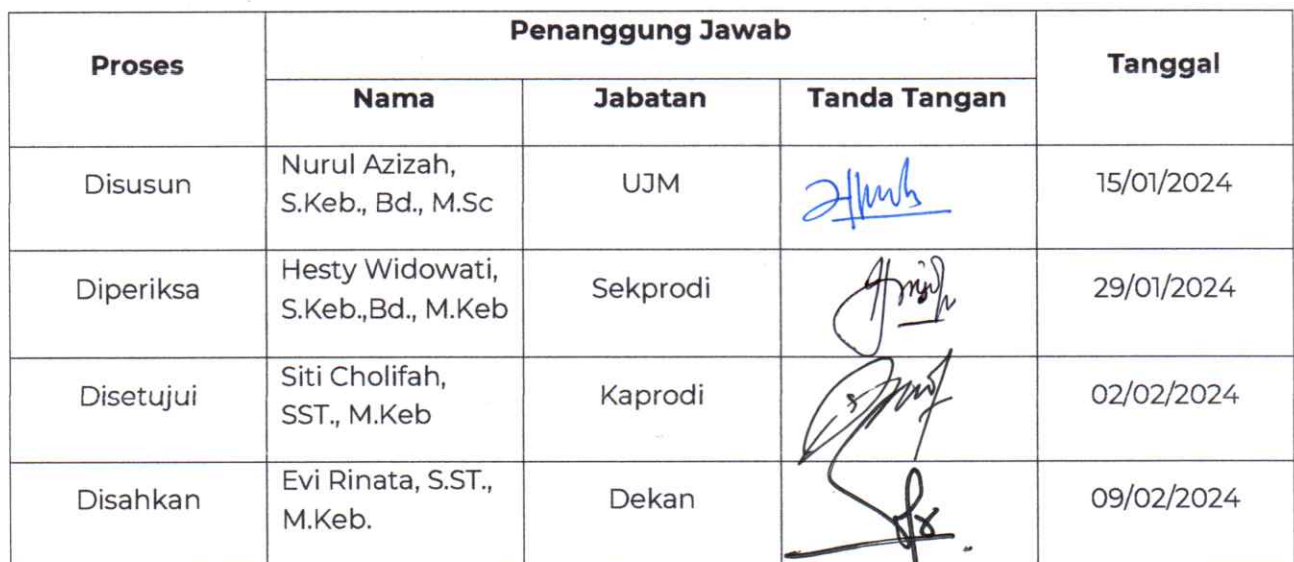 Proses
Penanggung Jawab
Tanggal
Nama
Jabatan
Tanda Tangan
Disusun
Nurul Azizah,
S.Keb., Bd., M.Sc
UJM
15/01/2024
Diperiksa
Hesty Widowati,
S.Keb.,Bd., M.Keb
Sekprodi
29/01/2024
Disetujui
Siti Cholifah,
SST., M.Keb
Kaprodi
02/02/2024
Disahkan
Evi Rinata, S.ST.,
M.Keb.
Dekan
09/02/2024